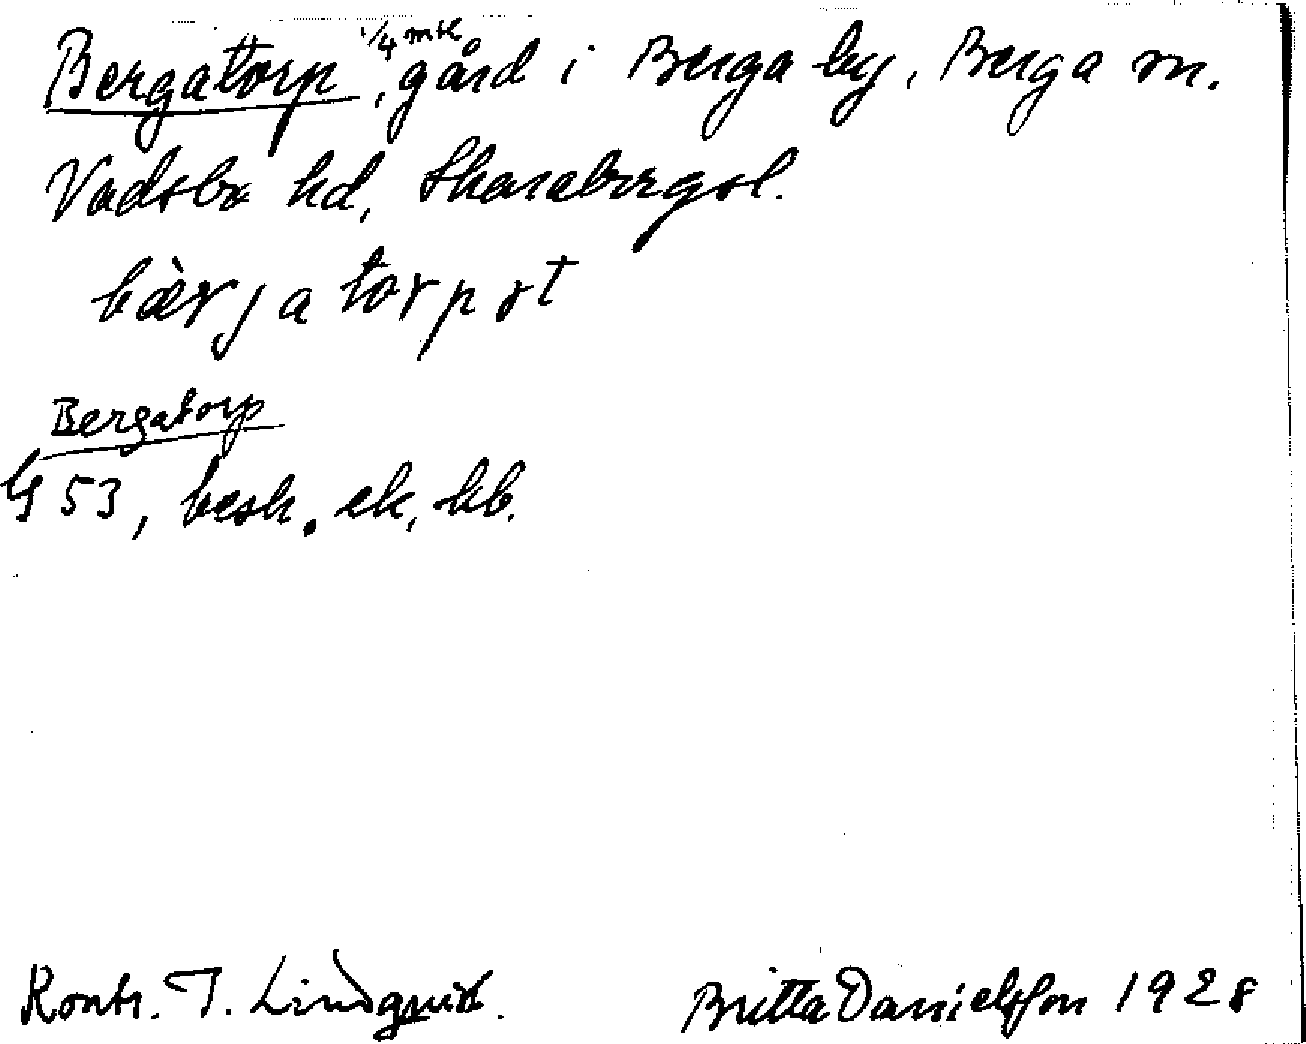 Bergatorp, 1/4 mtl gård i Berga by, Berga sn.
Vadsbo hd, Skaraborgsl.
bærjatorpət
Bergatorp
G 53, besk. ek, kb.
Kontr. I. Lindquist.
Britta Danielsson 1928